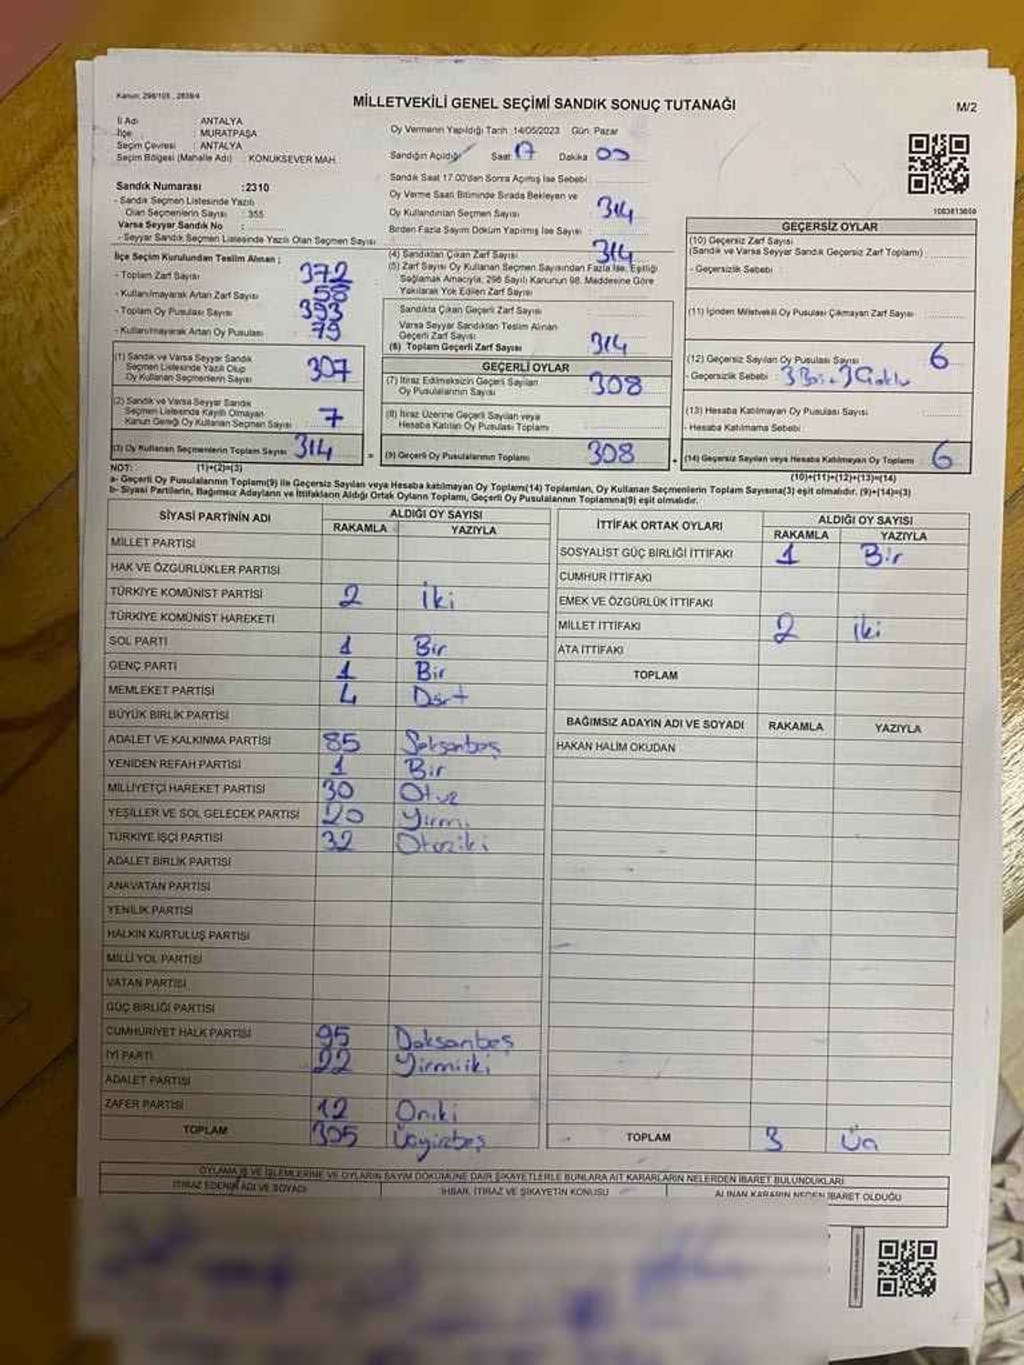 Kanun: 298/105, 2839/4
MİLLETVEKİLİ GENEL SEÇİMİ SANDIK SONUÇ TUTANAĞI
M/2
İl Adı : ANTALYA
İlçe : MURATPAŞA
Seçim Çevresi : ANTALYA
Seçim Bölgesi (Mahalle Adı) : KONUKSEVER MAH.
Oy Vermenin Yapıldığı Tarih 14/05/2023 Gün: Pazar
Sandığın Açıldığı Saat 17 Dakika 00
Sandık Saat 17.00'den Sonra Açılmış İse Sebebi :
Sandık Numarası :2310
- Sandık Seçmen Listesinde Yazılı
Olan Seçmenlerin Sayısı : 355
Varsa Seyyar Sandık No :
- Seyyar Sandık Seçmen Listesinde Yazılı Olan Seçmen Sayısı
Oy Verme Saati Bitiminde Sırada Bekleyen ve
Oy Kullandırılan Seçmen Sayısı 314
Birden Fazla Sayım Döküm Yapılmış İse Sayısı :
İlçe Seçim Kurulundan Teslim Alınan ;
- Toplam Zarf Sayısı 372
- Kullanılmayarak Artan Zarf Sayısı 58
- Toplam Oy Pusulası Sayısı 393
- Kullanılmayarak Artan Oy Pusulası 79
(4) Sandıktan Çıkan Zarf Sayısı 314
(5) Zarf Sayısı Oy Kullanan Seçmen Sayısından Fazla İse, Eşitliği
Sağlamak Amacıyla; 298 Sayılı Kanunun 98. Maddesine Göre
Yakılarak Yok Edilen Zarf Sayısı
Sandıkta Çıkan Geçerli Zarf Sayısı
Varsa Seyyar Sandıktan Teslim Alınan
Geçerli Zarf Sayısı
(6) Toplam Geçerli Zarf Sayısı 314
(1) Sandık ve Varsa Seyyar Sandık
Seçmen Listesinde Yazılı Olup
Oy Kullanan Seçmenlerin Sayısı 307
(2) Sandık ve Varsa Seyyar Sandık
Seçmen Listesinde Kayıtlı Olmayan
Kanun Gereği Oy Kullanan Seçmen Sayısı 7
(3) Oy Kullanan Seçmenlerin Toplam Sayısı 314
GEÇERLİ OYLAR
(7) İtiraz Edilmeksizin Geçerli Sayılan
Oy Pusulalarının Sayısı 308
(8) İtiraz Üzerine Geçerli Sayılan veya
Hesaba Katılan Oy Pusulası Toplamı
= (9) Geçerli Oy Pusulalarının Toplamı 308 +
1083813650
GEÇERSİZ OYLAR
(10) Geçersiz Zarf Sayısı
(Sandık ve Varsa Seyyar Sandık Geçersiz Zarf Toplamı)
- Geçersizlik Sebebi :
(11) İçinden Milletvekili Oy Pusulası Çıkmayan Zarf Sayısı
(12) Geçersiz Sayılan Oy Pusulası Sayısı 6
- Geçersizlik Sebebi : 3 Boş+3 Çoklu
(13) Hesaba Katılmayan Oy Pusulası Sayısı
- Hesaba Katılmama Sebebi :
(14) Geçersiz Sayılan veya Hesaba Katılmayan Oy Toplamı 6
NOT: (1)+(2)=(3) (10)+(11)+(12)+(13)=(14)
a- Geçerli Oy Pusulalarının Toplamı(9) ile Geçersiz Sayılan veya Hesaba katılmayan Oy Toplamı(14) Toplamları, Oy Kullanan Seçmenlerin Toplam Sayısına(3) eşit olmalıdır. (9)+(14)=(3)
b- Siyasi Partilerin, Bağımsız Adayların ve İttifakların Aldığı Ortak Oyların Toplamı, Geçerli Oy Pusulalarının Toplamına(9) eşit olmalıdır.
SİYASİ PARTİNİN ADI ALDIĞI OY SAYISI
RAKAMLA YAZIYLA
MİLLET PARTİSİ
HAK VE ÖZGÜRLÜKLER PARTİSİ
TÜRKİYE KOMÜNİST PARTİSİ 2 İki
TÜRKİYE KOMÜNİST HAREKETİ
SOL PARTİ 1 Bir
GENÇ PARTİ 1 Bir
MEMLEKET PARTİSİ 4 Dört
BÜYÜK BİRLİK PARTİSİ
ADALET VE KALKINMA PARTİSİ 85 Seksenbeş
YENİDEN REFAH PARTİSİ 1 Bir
MİLLİYETÇİ HAREKET PARTİSİ 30 Otuz
YEŞİLLER VE SOL GELECEK PARTİSİ 20 Yirmi
TÜRKİYE İŞÇİ PARTİSİ 32 Otuziki
ADALET BİRLİK PARTİSİ
ANAVATAN PARTİSİ
YENİLİK PARTİSİ
HALKIN KURTULUŞ PARTİSİ
MİLLİ YOL PARTİSİ
VATAN PARTİSİ
GÜÇ BİRLİĞİ PARTİSİ
CUMHURİYET HALK PARTİSİ 95 Doksanbeş
İYİ PARTİ 22 Yirmiiki
ADALET PARTİSİ
ZAFER PARTİSİ 12 Oniki
TOPLAM 305 Üçyüzbeş
İTTİFAK ORTAK OYLARI ALDIĞI OY SAYISI
RAKAMLA YAZIYLA
SOSYALİST GÜÇ BİRLİĞİ İTTİFAKI 1 Bir
CUMHUR İTTİFAKI
EMEK VE ÖZGÜRLÜK İTTİFAKI
MİLLET İTTİFAKI 2 İki
ATA İTTİFAKI
TOPLAM
BAĞIMSIZ ADAYIN ADI VE SOYADI RAKAMLA YAZIYLA
HAKAN HALİM OKUDAN
TOPLAM 3 Üç
OYLAMA İŞ VE İŞLEMLERİNE VE OYLARIN SAYIM DÖKÜMÜNE DAİR ŞİKAYETLERLE BUNLARA AİT KARARLARIN NELERDEN İBARET BULUNDUKLARI
İTİRAZ EDENİN ADI VE SOYADI İHBAR, İTİRAZ VE ŞİKAYETİN KONUSU ALINAN KARARIN NEDEN İBARET OLDUĞU